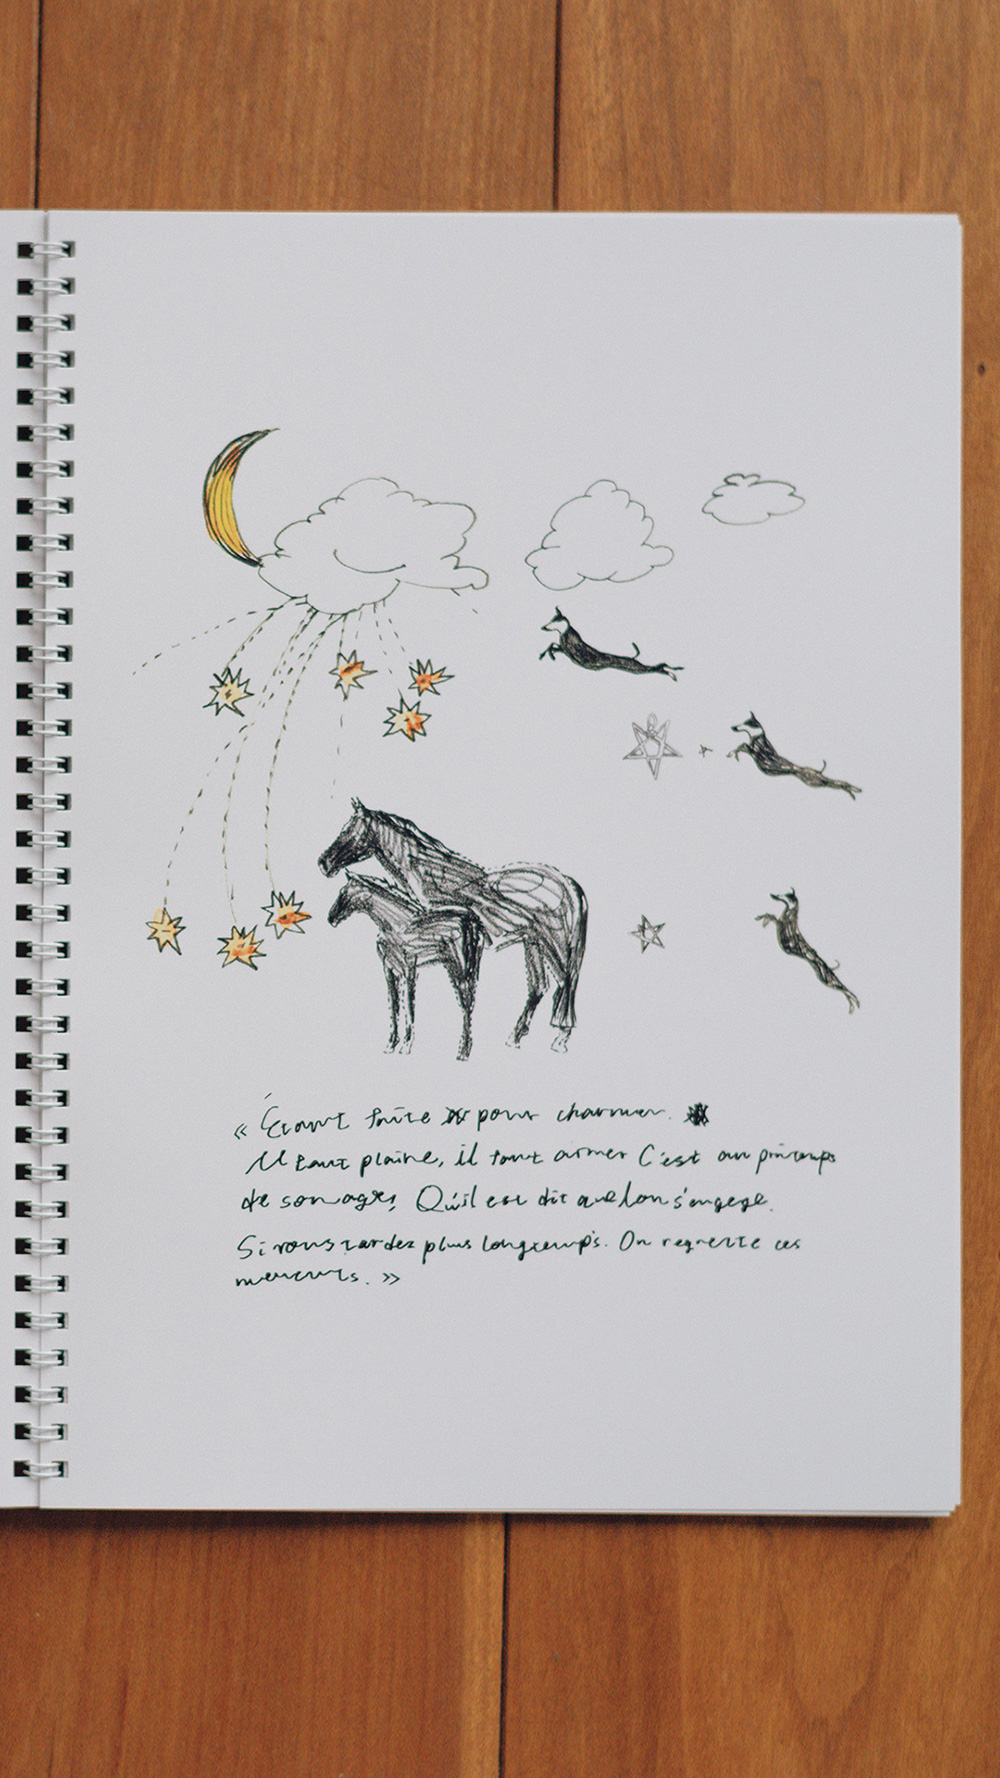 « Étant faite pour charmer.
Il faut plaire, il faut aimer C'est au printemps
de son age, Qu'il est dit que l'on s'engage.
Si vous tardez plus longtemps. On regrette ces
moments. »